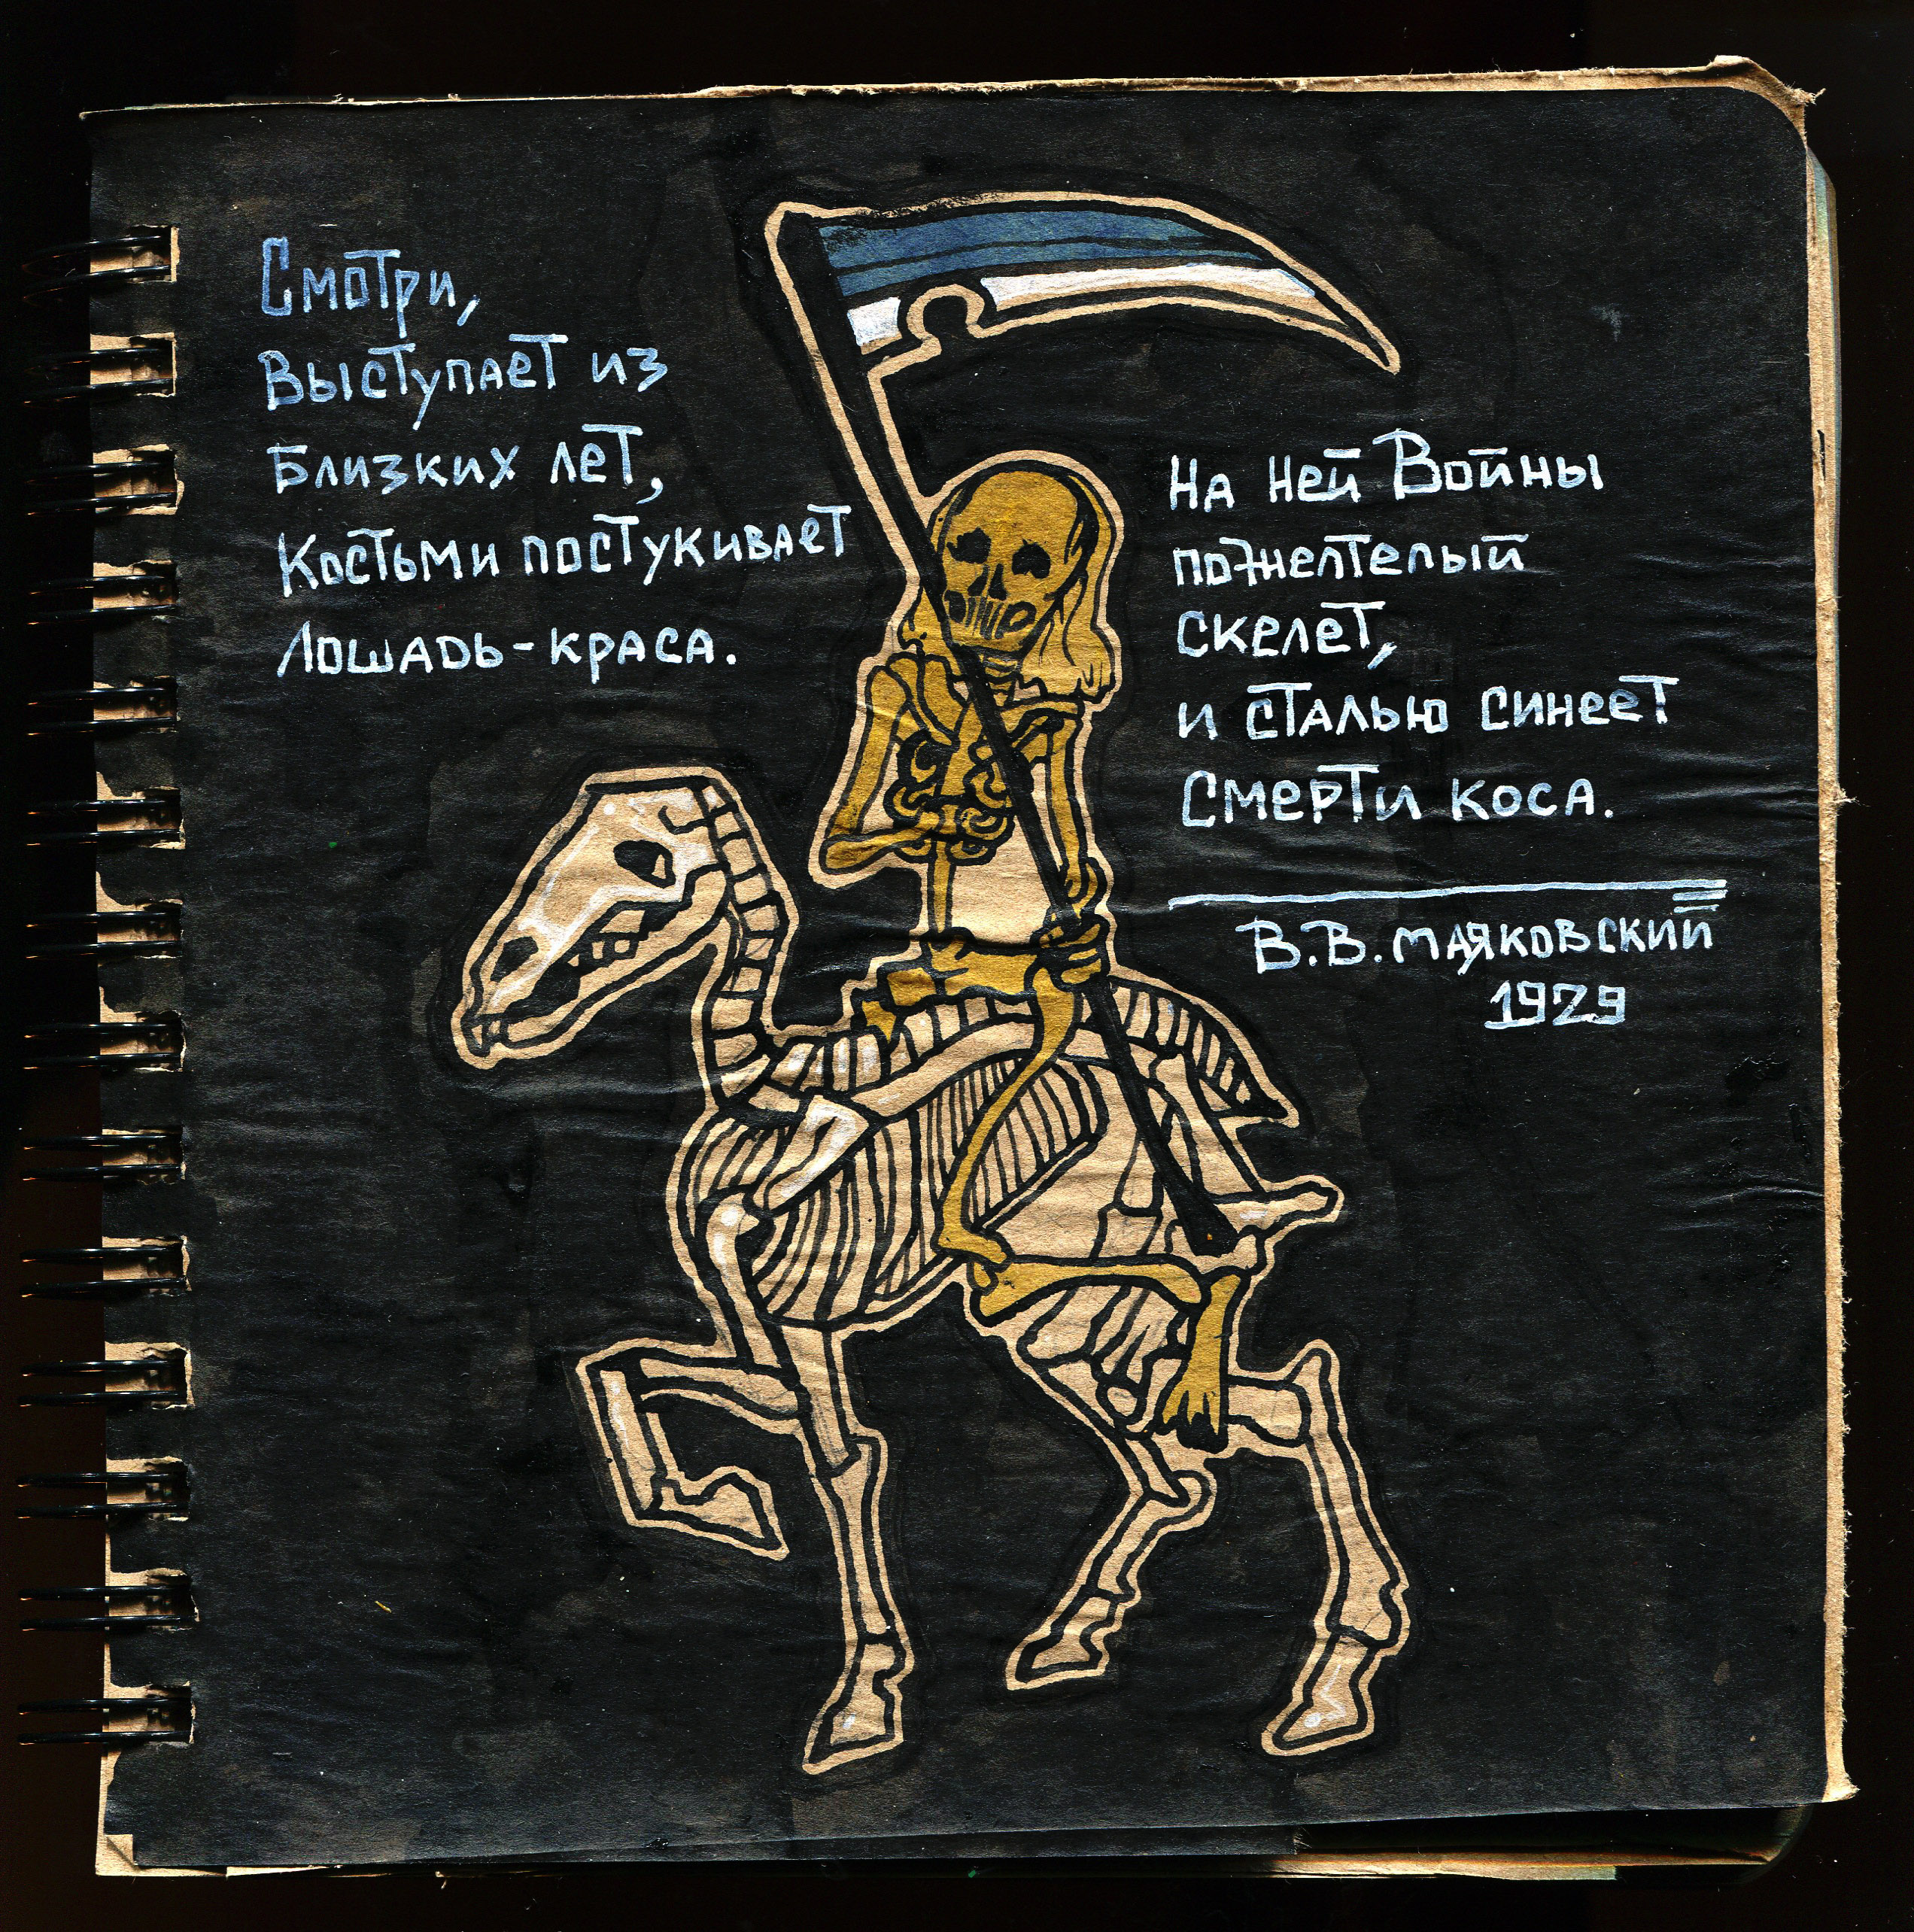 Смотри,
Выступает из
Близких лет,
Костьми постукивает
Лошадь-краса.
На ней Войны
пожелтелый
скелет,
и сталью синеет
Смерти коса.
В.В. Маяковский
1929